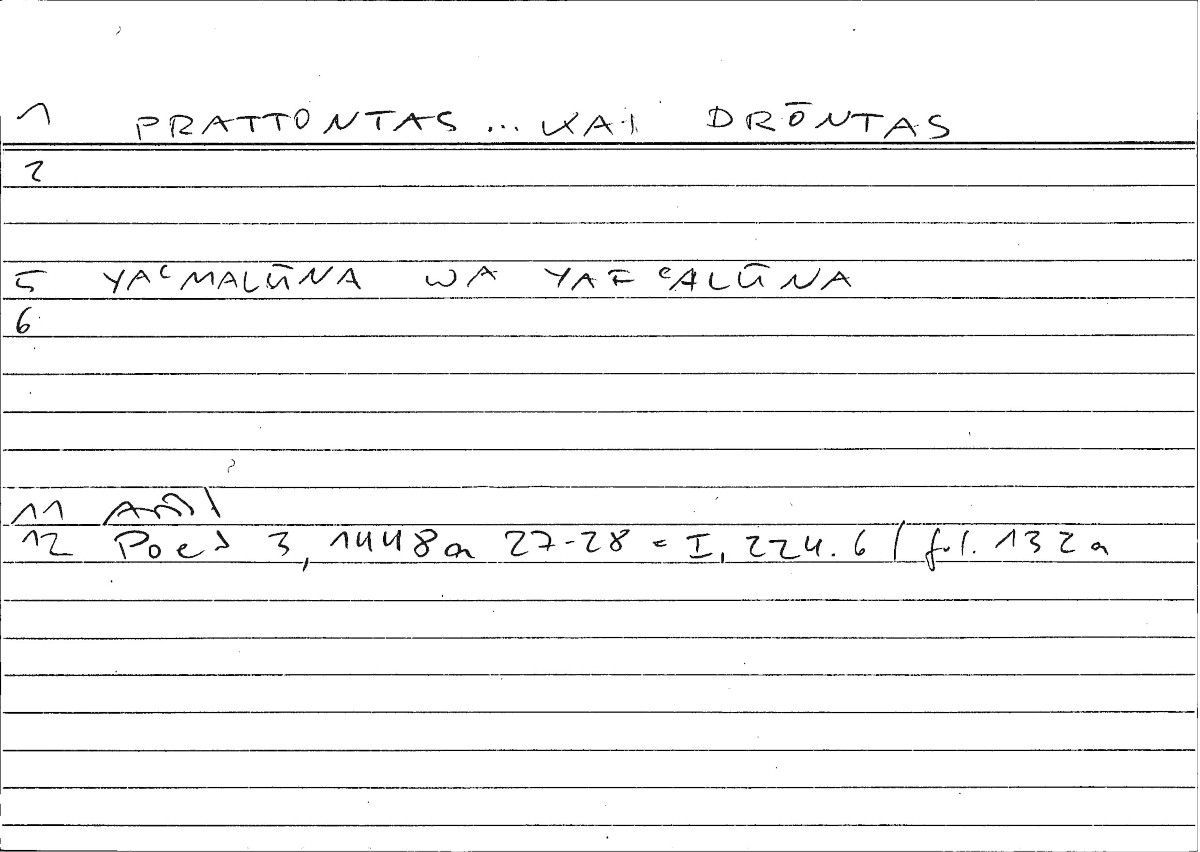 1 PRATTONTAS ... KAI DRŌNTAS
2
5 YAᶜMALŪNA WA YAFᶜALŪNA
6
11
12 Poet 3, 1448a 27-28 = I, 224.6 / fol. 132a